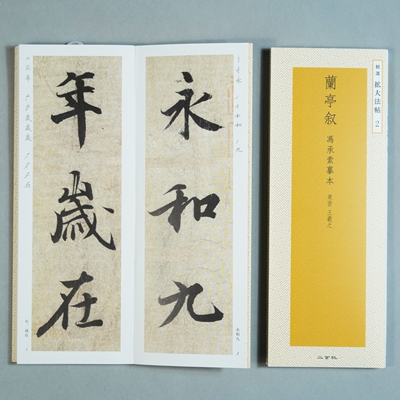 永和九
年歳在
精選 拡大法帖 2
蘭亭叙
馮承素摹本
東晋 王羲之
二玄社